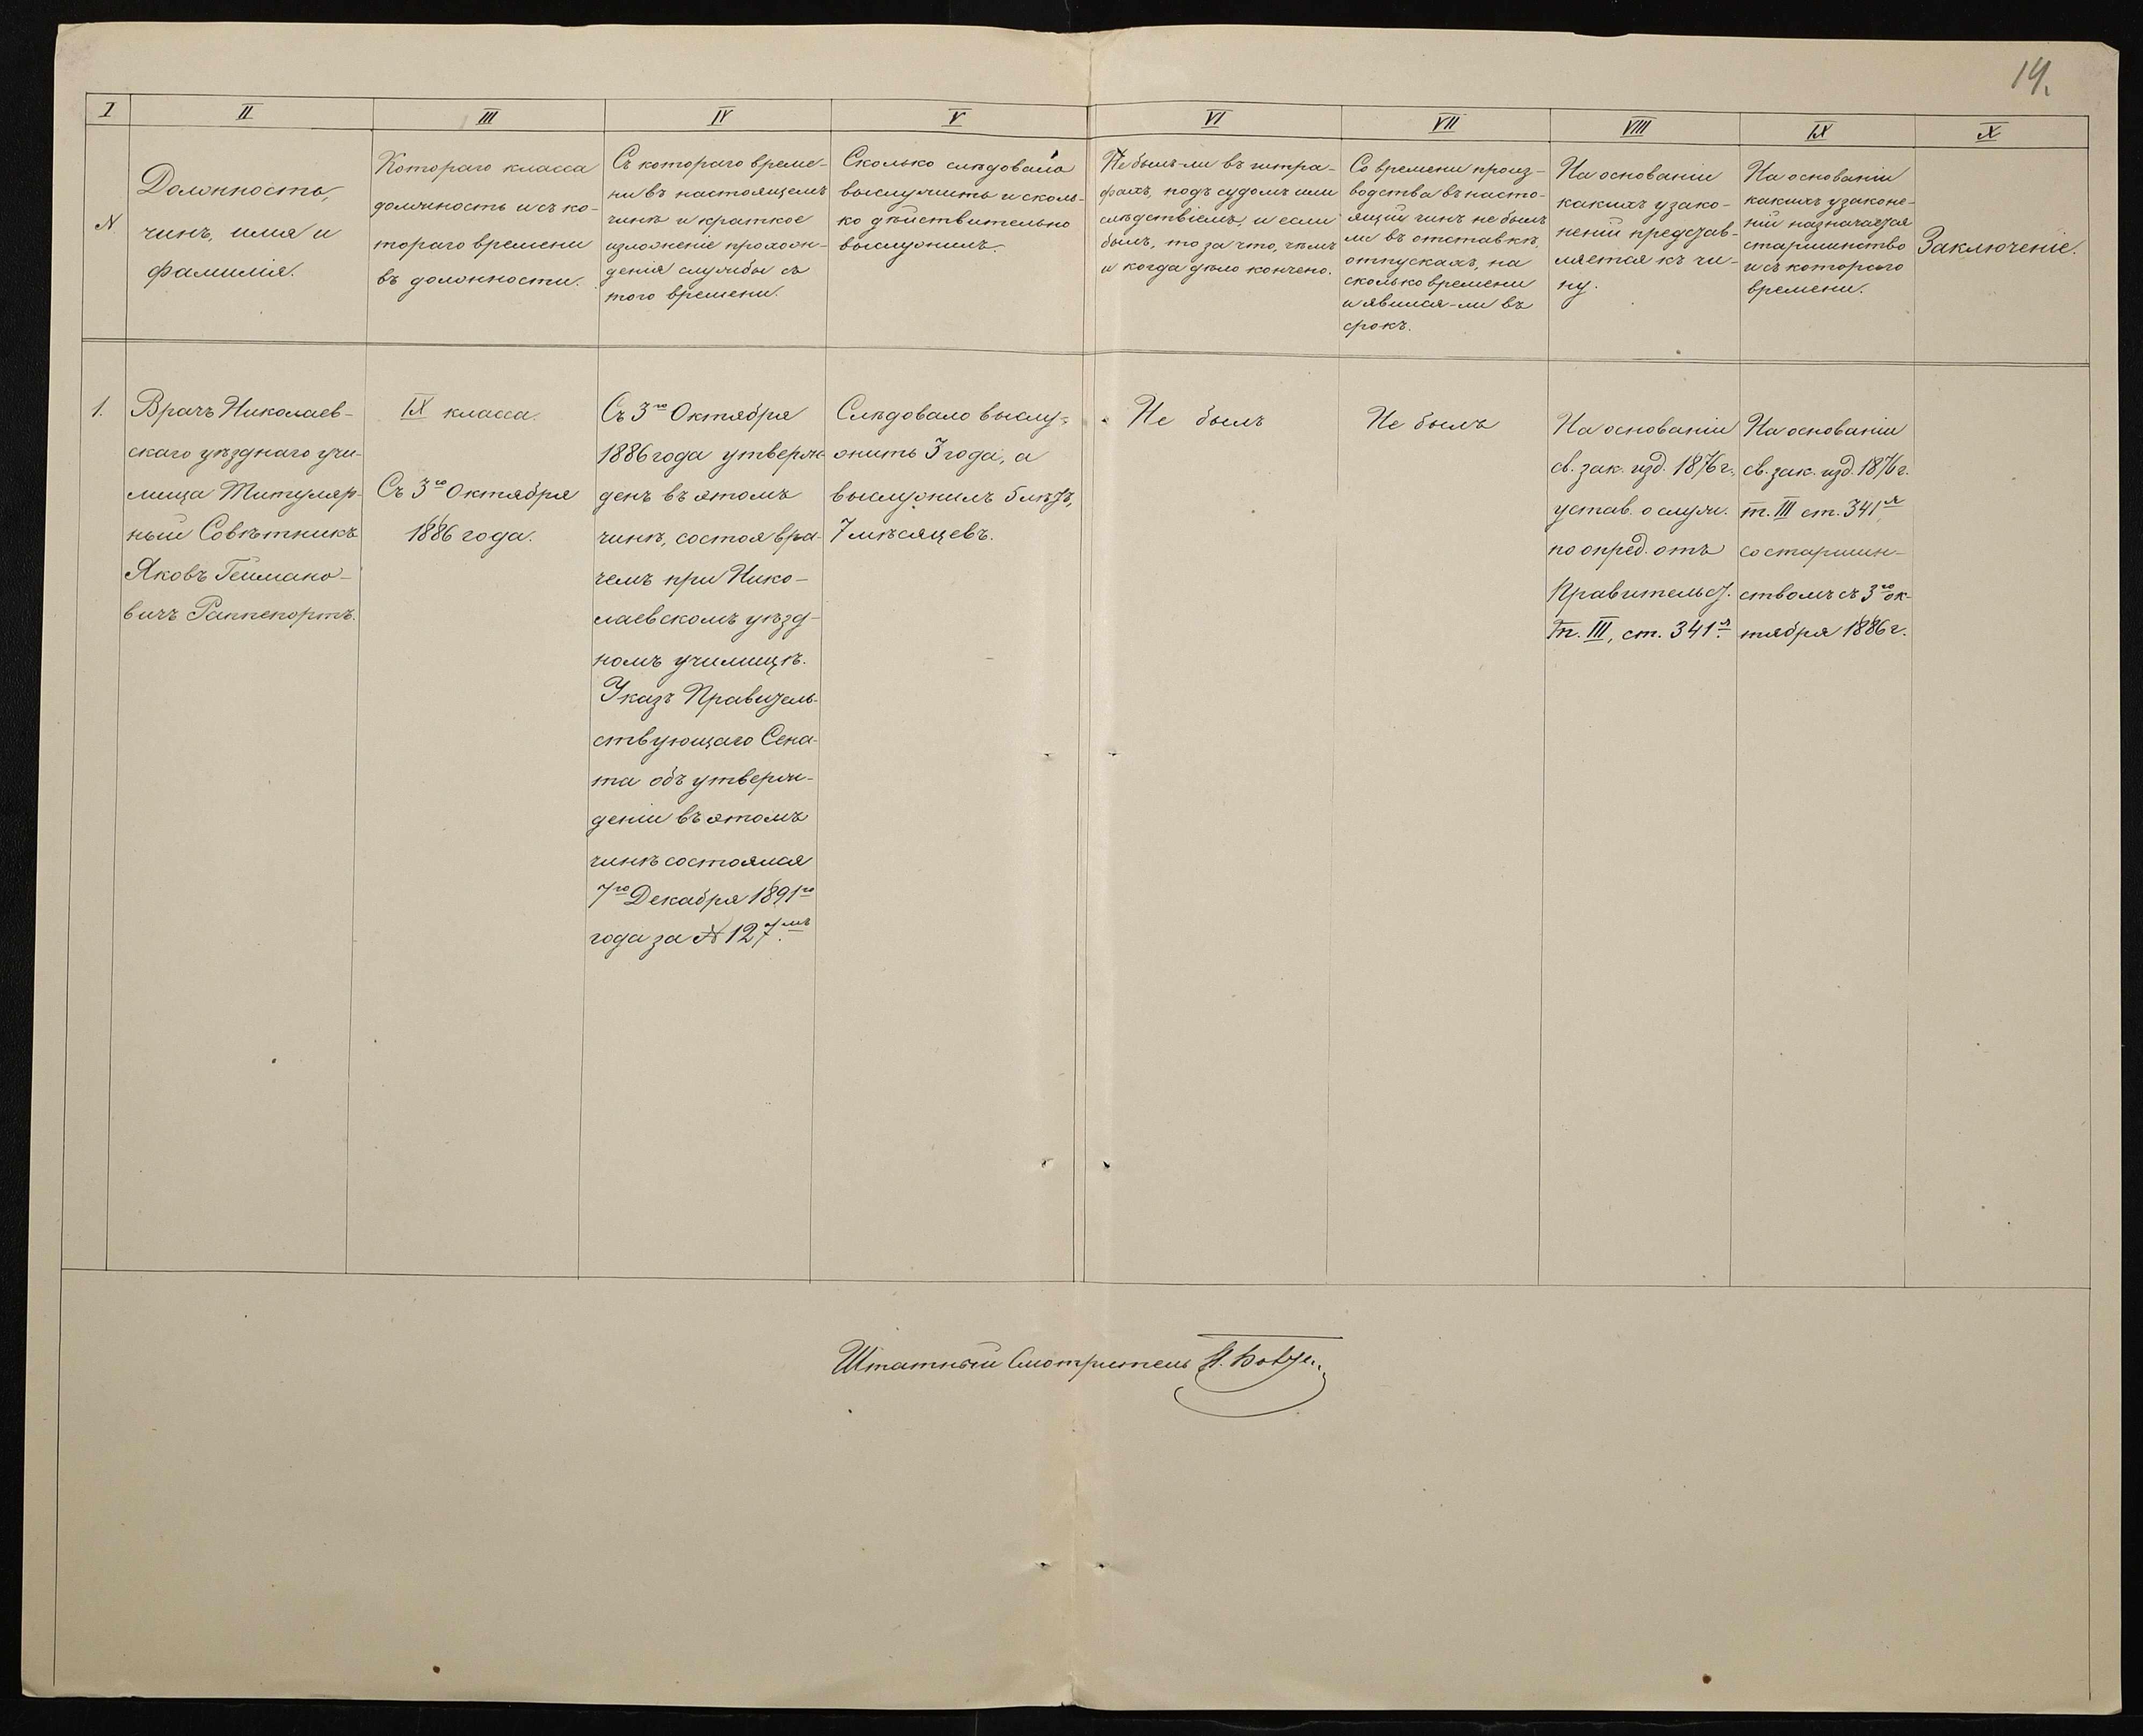 14.
I
II
III
IV
V
VI
VII
VIII
IX
X
N
Должность,
чинъ, имя и
фамилія.
Котораго класса
должность и съ ко-
тораго времени
въ должности.
Съ котораго време-
ни въ настоящемъ
чинѣ и краткое
изложеніе прохож-
денія службы съ
того времени.
Сколько слѣдовало
выслужить и сколь-
ко дѣйствительно
выслужилъ.
Не былъ-ли въ штра-
фахъ, подъ судомъ или
слѣдствіемъ, и если
былъ, то за что, чѣмъ
и когда дѣло кончено.
Со времени произ-
водства въ насто-
ящій чинъ не былъ
ли въ отставкѣ,
отпускахъ, на
сколько времени
и явился-ли въ
срокъ.
На основаніи
какихъ узако-
неній представ-
ляется къ чи-
ну.
На основаніи
какихъ узаконе-
ній назначается
старшинство
и съ котораго
времени.
Заключеніе.
1.
Врачъ Николаев-
скаго уѣзднаго учи-
лища Титуляр-
ный Совѣтникъ
Яковъ Геймано-
вичъ Раппепортъ.
IX класса.
Съ 3го Октября
1886 года.
Съ 3го Октября
1886 года утверж-
денъ въ этомъ
чинѣ, состоя вра-
чемъ при Нико-
лаевскомъ уѣзд-
номъ училищѣ.
Указъ Правитель-
ствующаго Сена-
та объ утверж-
деніи въ этомъ
чинѣ состоялся
7го Декабря 1891го
года за № 127мъ.
Слѣдовало выслу-
жить 3 года, а
выслужилъ 5 лѣтъ,
7 мѣсяцевъ.
Не былъ
Не былъ
На основаніи
св. зак. изд. 1876 г.
устав. о служ.
по опред. отъ
Правительст.
т. III, ст. 341я.
На основаніи
св. зак. изд. 1876 г.
т. III ст. 341я
со старшин-
ствомъ съ 3го ок-
тября 1886 г.
Штатный Смотритель